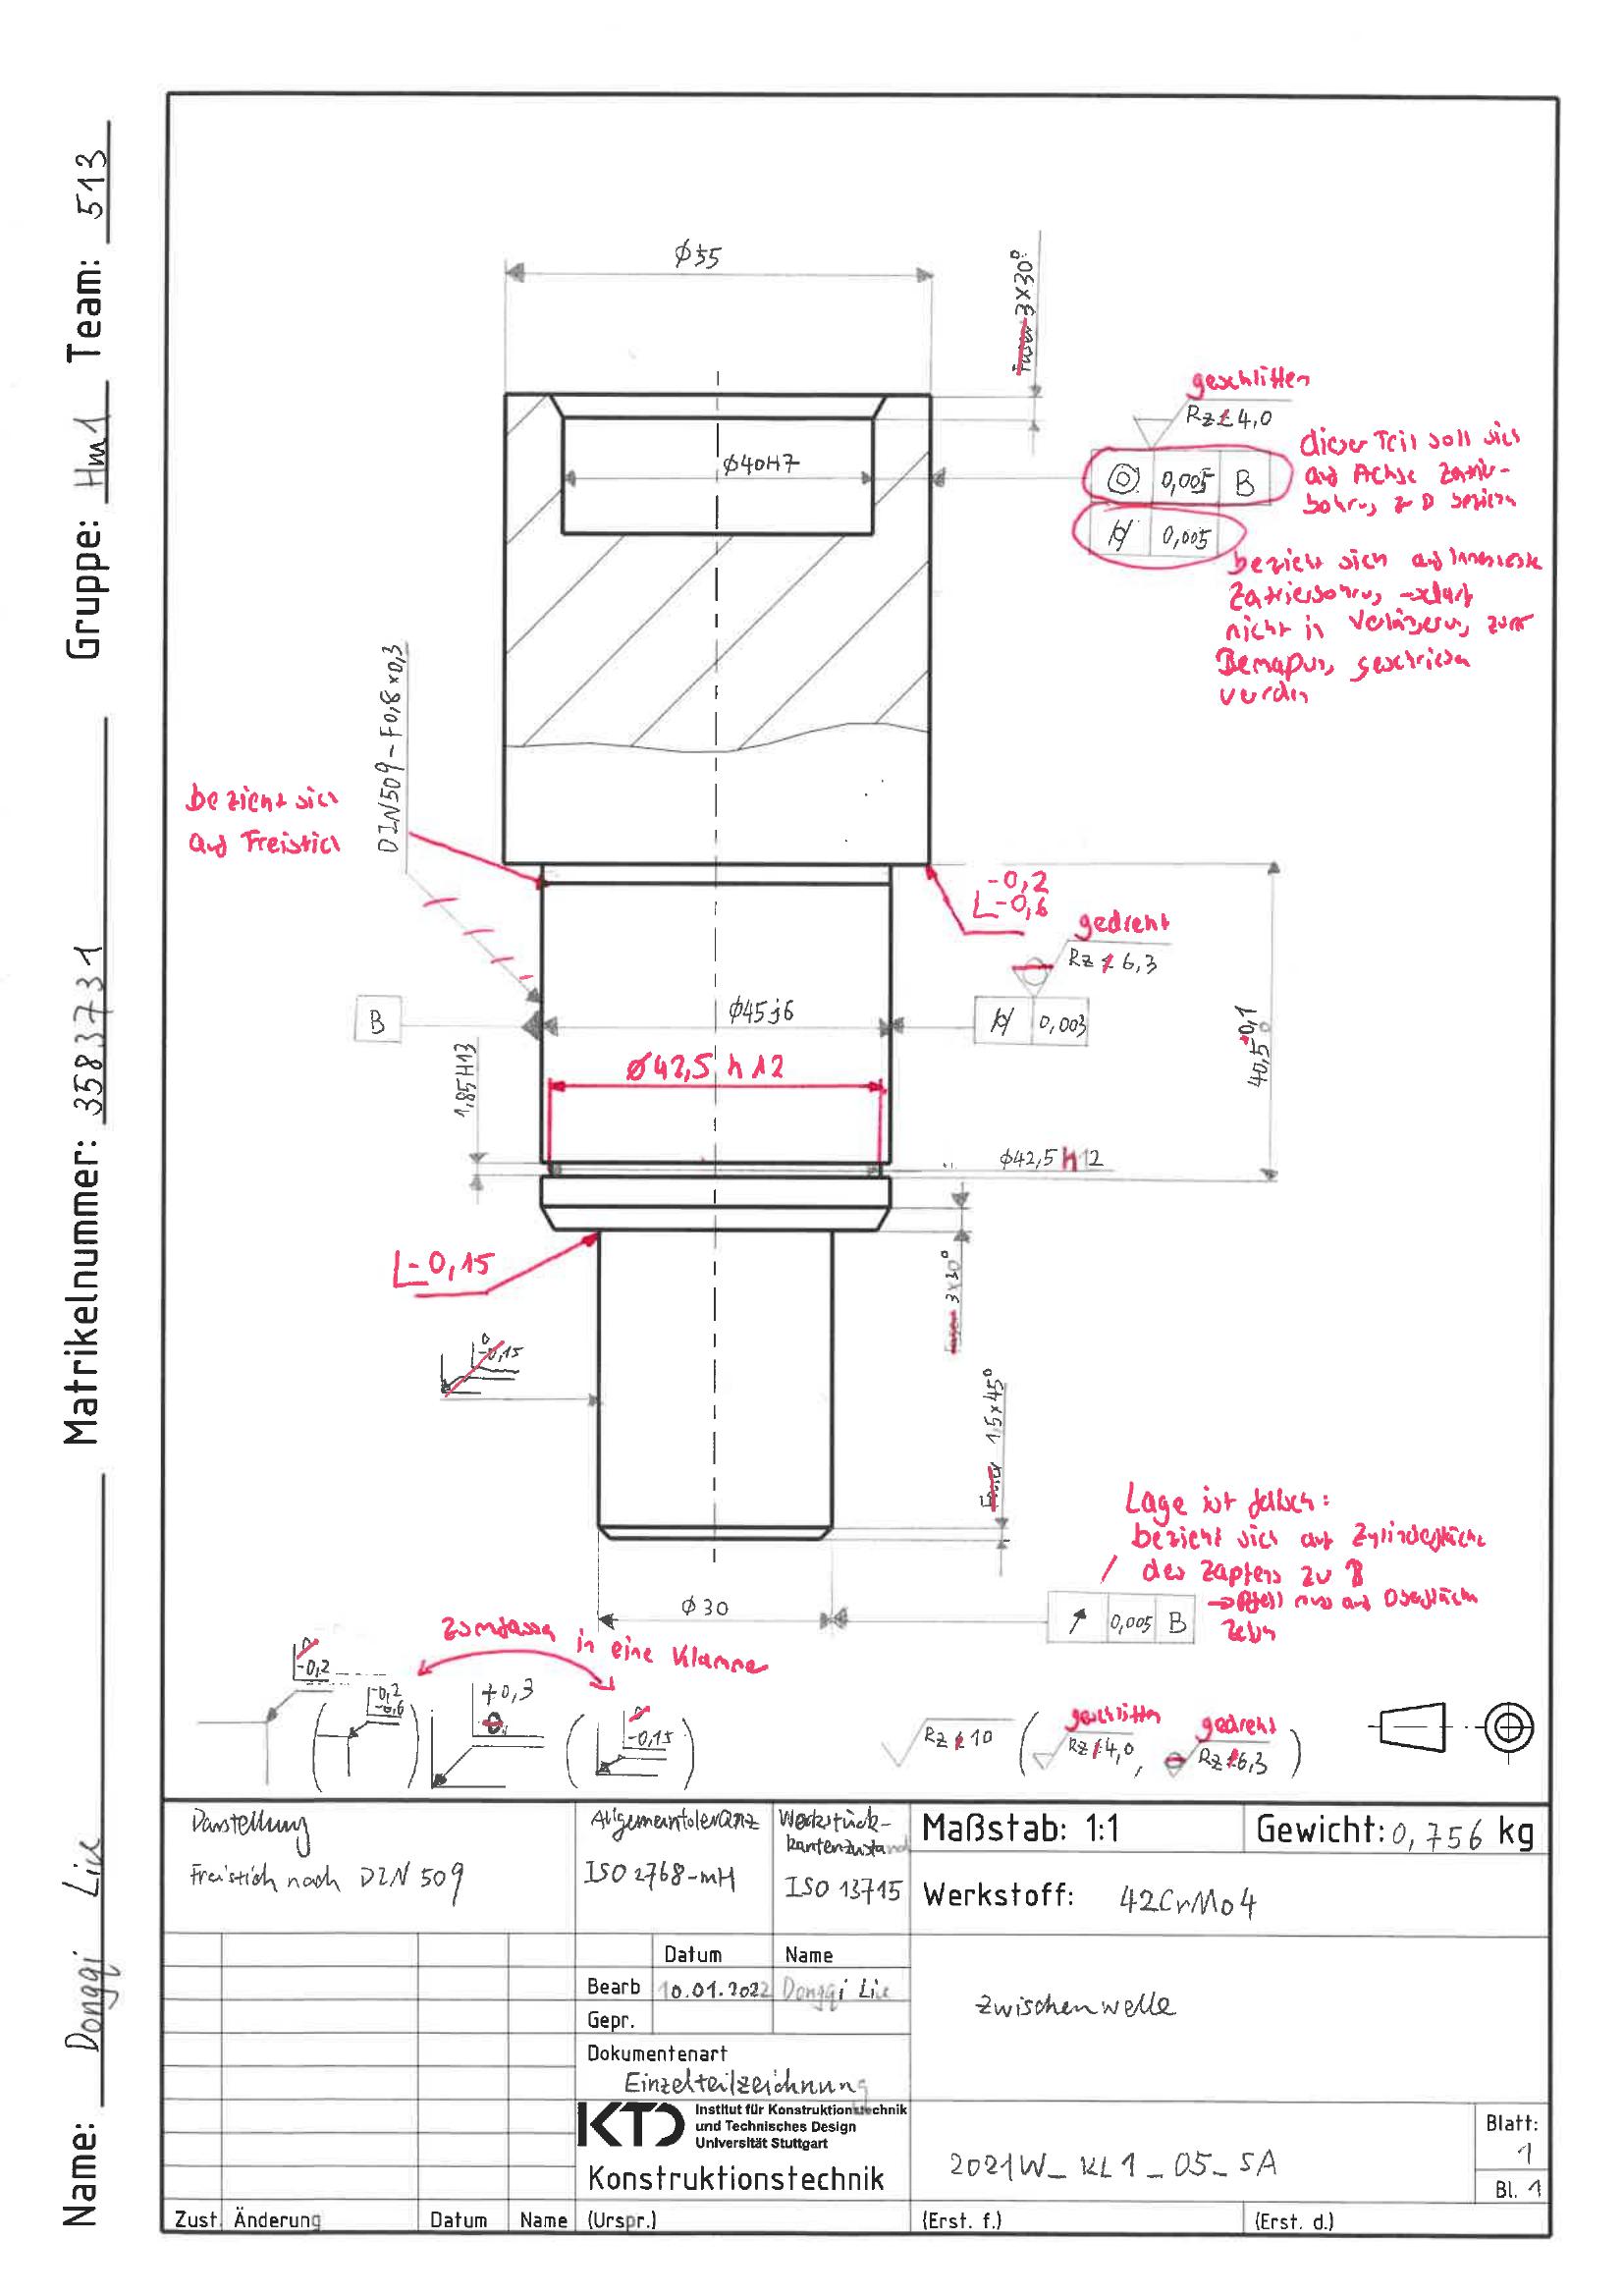 Name: Dongqi Liu Matrikelnummer: 3583731 Gruppe: Hm1 Team: 513
⌀55
3x30°
geschliffen
Rz 4,0
⌀40H7
◎ 0,005 B
dieser Teil soll sich
auf Achse
zu B
⌭ 0,005
bezieht sich auf
nicht in
geschrieben
werden
DIN509-F0,6x0,3
bezieht sich
auf Freistich
-0,2
-0,6
gedreht
Rz 6,3
B
⌀45j6
⌭ 0,003
40,5 +0,1 0
⌀42,5 h12
1,85H13
⌀42,5 h12
-0,15
3x30°
0
-0,15
1,5x45°
Lage ist falsch:
bezieht sich auf Zylinderfläche
des Zapfens zu B
⌀30
↗ 0,005 B
Pfeil auf Oberfläche
in eine Klammer
-0,2
-0,2
-0,6
+0,3
0
-0,15
Rz 10
geschliffen
Rz 4,0
,
gedreht
Rz 6,3
Darstellung
Freistich nach DIN 509
Allgemeintoleranz
ISO 2768-mH
Werkstück-
kantenzustand
ISO 13715
Maßstab: 1:1
Gewicht: 0,756 kg
Werkstoff: 42CrMo4
Datum Name
Bearb 10.01.2022 Dongqi Liu
Gepr.
Zwischenwelle
Dokumentenart
Einzelteilzeichnung
KTD Institut für Konstruktionstechnik
und Technisches Design
Universität Stuttgart
Konstruktionstechnik
2021W_KL1_05_SA
Blatt:
1
Bl. 1
Zust. Änderung Datum Name (Urspr.) (Erst. f.) (Erst. d.)